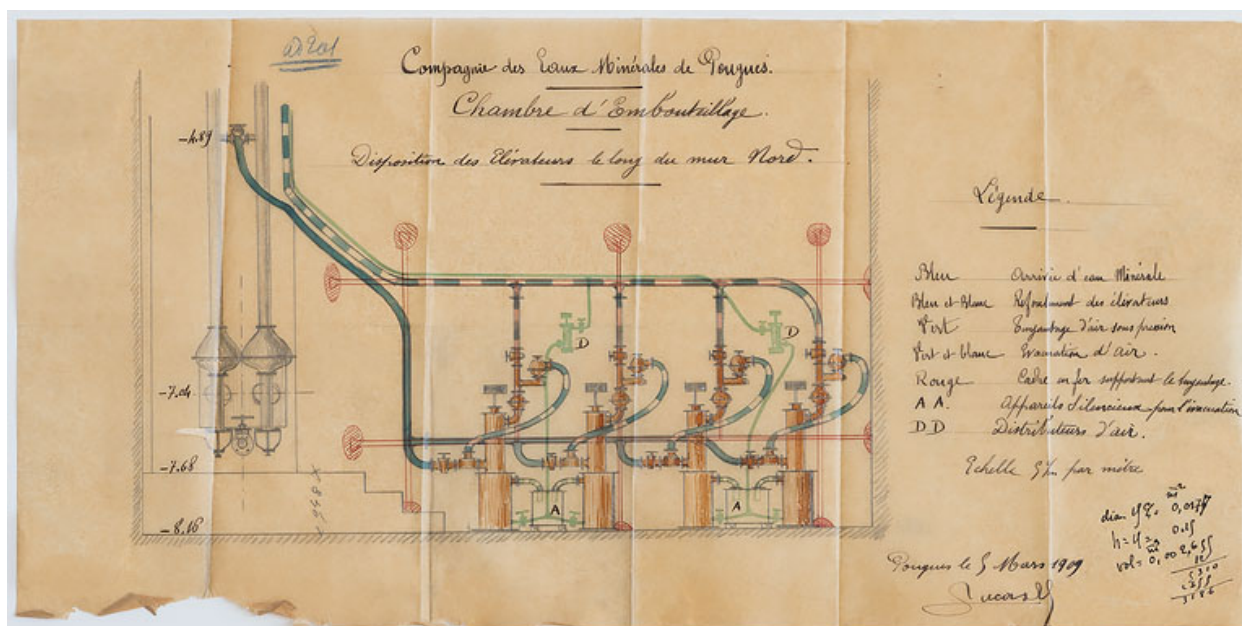 Compagnie des Eaux Minérales de Pougues.
Chambre d'Embouteillage.
Disposition des Elévateurs le long du mur Nord.
-4.89
-7.04
-7.68
-8.16
D
D
A
A
Légende
Bleu Arrivée d'eau Minérale
Bleu et Blanc Refoulement des élévateurs
Vert Tuyautage d'air sous pression
Vert et blanc Evacuation d'air.
Rouge Cadre en fer supportant le tuyautage.
A A. Appareils Silencieux pour l'évacuation
D D Distributeurs d'air.
Echelle par mètre
Pougues le 5 Mars 1909
dia.
0.15
vol =